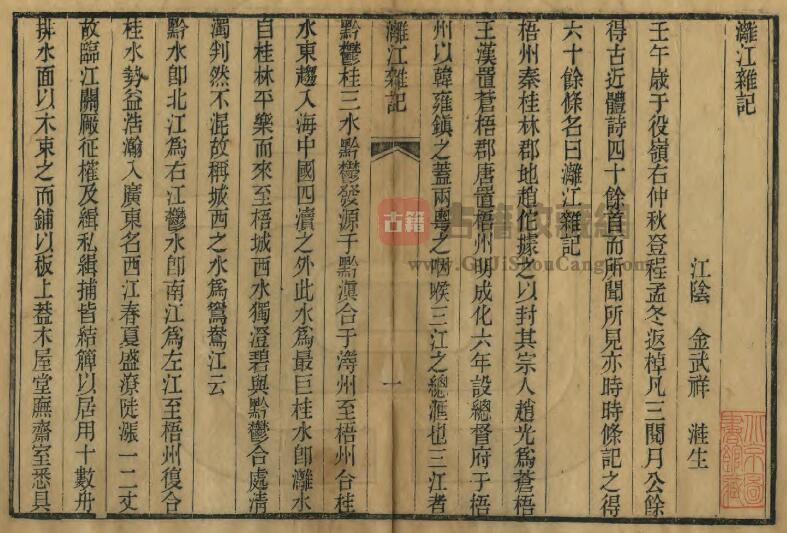 灕江雜記
江陰　金武祥　溎生
壬午歲于役嶺右仲秋登程孟冬返棹凡三閱月公餘
得古近體詩四十餘首而所聞所見亦時時條記之得
六十餘條名曰灕江雜記
梧州秦桂林郡地趙佗據之以封其宗人趙光爲蒼梧
王漢置蒼梧郡唐置梧州明成化六年設總督府于梧
州以韓雍鎮之蓋兩粵之咽喉三江之總滙也三江者
灕江雜記
一
黔鬱桂三水黔鬱發源于黔滇合于潯州至梧州合桂
水東趨入海中國四瀆之外此水爲最巨桂水卽灕水
自桂林平樂而來至梧城西水獨澄碧與黔鬱合處清
濁判然不混故稱城西之水爲鴛鴦江云
黔水卽北江爲右江鬱水卽南江爲左江至梧州復合
桂水勢益浩瀚入廣東名西江春夏盛潦陡漲一二丈
故臨江關厰征榷及緝私緝捕皆結簰以居用十數舟
排水面以木束之而鋪以板上葢木屋堂廡齋室悉具
古籍
古籍收藏網
www.GuJiShouCang.com